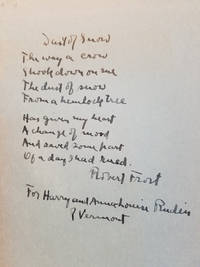 Dust of Snow
The way a crow
Shook down on me
The dust of snow
From a hemlock tree
Has given my heart
A change of mood
And saved some part
Of a day I had rued.
Robert Frost
For Harry and Anna
Vermont